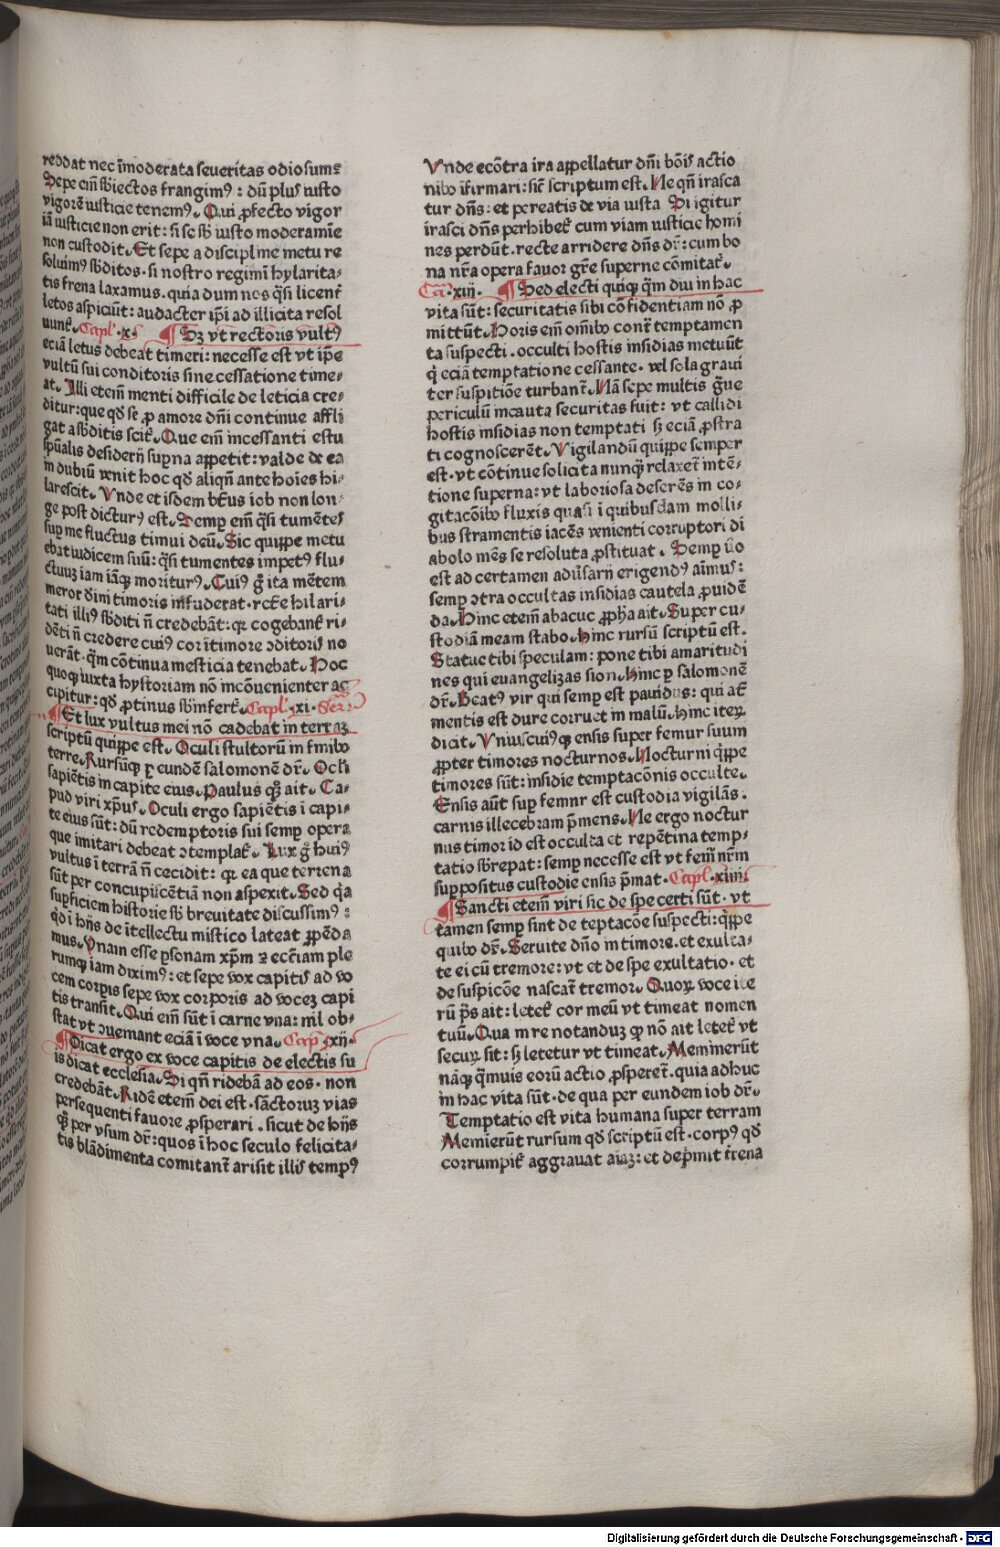 reddat nec īmoderata seueritas odiosums
Sepe em̄ sb̄iectos frangimꝰ : dū plus iusto
vigorē iusticie tenemꝰ. Qui ꝓfecto vigor
iā iusticie non erit : si se sb̄ iusto moderamīe
non custodit. Et sepe a discipline metu re
soluimꝰ sb̄ditos. si nostro regimī hylarita⸗
tis frena laxamus. quia dum nos q̄si licent̄
letos aspiciūt : audacter ip̄i ad illicita resol
uunt̄. Capl̄. x. Sꝫ vt rectoris vultꝰ
eciā letus debeat timeri : necesse est vt ip̄e
vultū sui conditoris sine cessatione time⸗
at. Illi etem̄ menti difficile de leticia cre⸗
ditur : que qd̄ se ꝓ amore dn̄i continue affli
gat a sb̄ditis scit̄. Que em̄ incessanti estu
sp̄ualis desiderij sup̄na appetit : valde de ea
in dubiū venit hoc qd̄ aliqn̄ ante hoies hi⸗
larescit. Vnde et isdem bt̄us iob non lon⸗
ge post dicturꝰ est. Semp em̄ q̄si tumētes
sup me fluctus timui deū. Sic quippe metu
ebat iudicem suū : q̄si tumentes impetꝰ flu⸗
ctuuꝫ iam iāqꝫ moriturꝰ. Cuiꝰ g̊ ita mētem
meror diuini timoris infuderat. rc̄te hilari⸗
tati illiꝰ sb̄diti n̄ credebāt : qꝛ cogebant̄ ri⸗
dēti n̄ credere cuiꝰ cor ī timore ɔditoris no
uerāt. q̄m cōtinua mesticia tenebat. Hoc
quoqꝫ iuxta hystoriam nō incōuenienter ac
cipitur : qd̄ ꝓtinus sb̄infert̄. Capl̄. xi.
Et lux vultus mei nō cadebat in terraꝫ
scriptū quippe est. Oculi stultorū in finibꝰ
terre. Rursūqꝫ ꝑ eundē salomonē dr̄. Och
sapiētis in capite eius. Paulus qꝫ ait. Ca⸗
pud viri xp̄us. Oculi ergo sapiētis ī capi⸗
te eius sūt : dū redemptoris sui semp opera
que imitari debeat ɔtemplat̄. Lux g̊ huiꝰ
vultus ī terrā n̄ cecidit : qꝛ ea que terrena
sūt per concupiscētiā non aspexit. Sed q̄a
sup̄ficiem historie sb̄ breuitate discussimꝰ :
qd̄ ī hijs de ītellectu mistico lateat ꝓpēda
mus. Vnam esse ꝑsonam xp̄m ⁊ ecc̄iam ple
rumqꝫ iam diximꝰ : et sepe vox capitis ad vo
cem corpis sepe vox corporis ad voceꝫ capi
tis transit. Qui em̄ sūt ī carne vna : nil ob⸗
stat vt ɔuemant eciā ī voce vna. Cap̄. xij.
Dicat ergo ex voce capitis de electis su
is dicat ecclesia. Si qn̄ ridebā ad eos. non
credebāt. Ridē etem̄ dei est. sāctoruꝫ vias
persequenti fauore ꝓsperari. sicut de hijs
qꝫ per vsum dr̄ : quos ī hoc seculo felicita⸗
tis blādimenta comitant̄ arisit illis tempꝰ
Vnde ecōtra ira appellatur dn̄i bōis actio
nibꝰ īfirmari : sic̄ scriptum est. Ne qn̄ irasca
tur dn̄s : et pereatis de via iusta Si igitur
irasci dn̄s perhibet̄ cum viam iusticie homi
nes perdūt. recte arridere dn̄s dr̄ : cum bo
na nr̄a opera fauor gr̄e superne cōmitat̄.
Ca. xiij. Sed electi quiqꝫ q̄m diu in hac
vita sūt : securitatis sibi cōfidentiam nō ꝓ
mittūt. Horis em̄ om̄ibꝰ contͣ temptamen
ta suspecti. occulti hostis insidias metuūt
q̄ eciā temptatione cessante. vel sola graui
ter suspitiōe turbant̄. Nā sepe multis g̊ue
periculū incauta securitas fuit : vt callidi
hostis insidias non temptati sꝫ eciā ꝓstra
ti cognoscerēt. Vigilandū quippe semper
est. vt cōtinue solicita nunqͣ̄ relaxet̄ intē⸗
tione superna : vt laboriosa deserēs in co⸗
gitacōibꝰ fluxis quasi ī quibusdam molli⸗
bus stramentis iacēs venienti corruptori di
abolo mēs se resoluta ꝓstituat. Semp v̄o
est ad certamen adūsarij erigendꝰ aīmus :
semp ɔtra occultas insidias cautela ꝓuidē
da. Hinc etem̄ abacuc ꝓpha ait. Super cu⸗
stodiā meam stabo. Hinc rursū scriptū est.
Statue tibi speculam : pone tibi amaritudi
nes qui euangelizas sion. Hinc ꝑ salomonē
dr̄. Beatꝰ vir qui semp est pauidus : qui aūt
mentis est dure corruet in malū. Hinc iteꝝ
dicit. Vniuscuiꝰqꝫ ensis super femur suum
ꝓpter timores nocturnos. Nocturni q̄ppe
timores sūt : insidie temptacōnis occulte.
Ensis aūt sup femur est custodia vigilās :
carnis illecebram p̄mens. Ne ergo noctur
nus timor id est occulta et repētina temp⸗
tatio sb̄repat : semp necesse est vt fem̄ nr̄m
suppositus custodie ensis p̄mat. Capl̄. xiiij
Sancti etem̄ viri sic de spe certi sūt. vt
tamen semp sint de tēptacōe suspecti : q̄ppe
quibꝰ dr̄. Seruite dn̄o in timore. et exulta⸗
te ei cū tremore : vt et de spe exultatio. et
de suspicōe nascat̄ tremor. Quoꝝ voce ite
rū p̄s ait : letet̄ cor meū vt timeat nomen
tuū. Qua in re notanduꝫ ꝙ nō ait letet̄ vt
secuꝝ sit : sꝫ letetur vt timeat. Meminerūt
nāqꝫ q̄muis eorū actio ꝓsperet̄. quia adhuc
in hac vita sūt. de qua per eundem iob dr̄.
Temptatio est vita humana super terram
Memīerūt rursum qd̄ scriptū est. corpꝰ qd̄
corrumpit̄ aggrauat aīaꝫ : et dep̄mit t̄rena
Digitalisierung gefördert durch die Deutsche Forschungsgemeinschaft - DFG